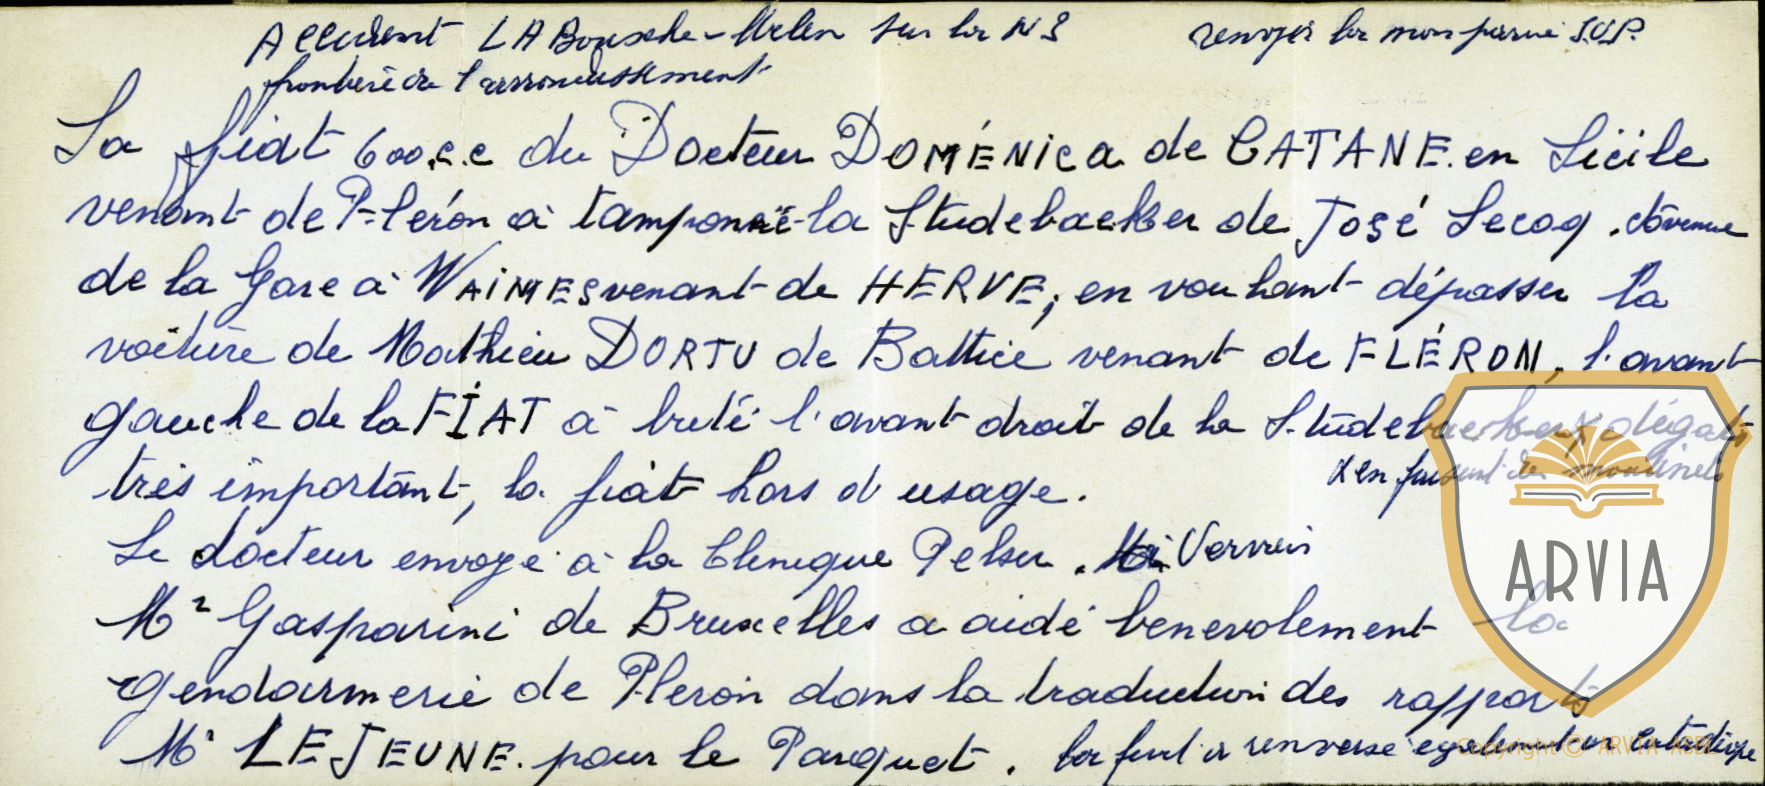 Accident LA Bouxhe-Melen sur la N3 renvoyer la S.V.P.
frontière de l'arrondissement
La fiat 600 c.c du Docteur DOMÉNICA de CATANE en Sicile
venant de Fléron à tamponné la Studebaecker de José Lecoq. avenue
de la Gare à WAIMES venant de HERVE, en voulant dépasser la
voiture de Mathieu DORTU de Battice venant de FLÉRON, l'avant
gauche de la FIAT à buté l'avant droit de la Studebaecker x dégats
très important, la fiat hors d usage.
x en faisant des moulinets
Le docteur envoyé à la Clinique Pelser. Verviers
Mr Gasparini de Bruxelles a aidé benevolement la
gendarmerie de Fleron dans la traduction des rapports
Mr LEJEUNE. pour le Parquet. la fiat a renversé egalement un
ARVIA
Copyright © ARVIA ASBL